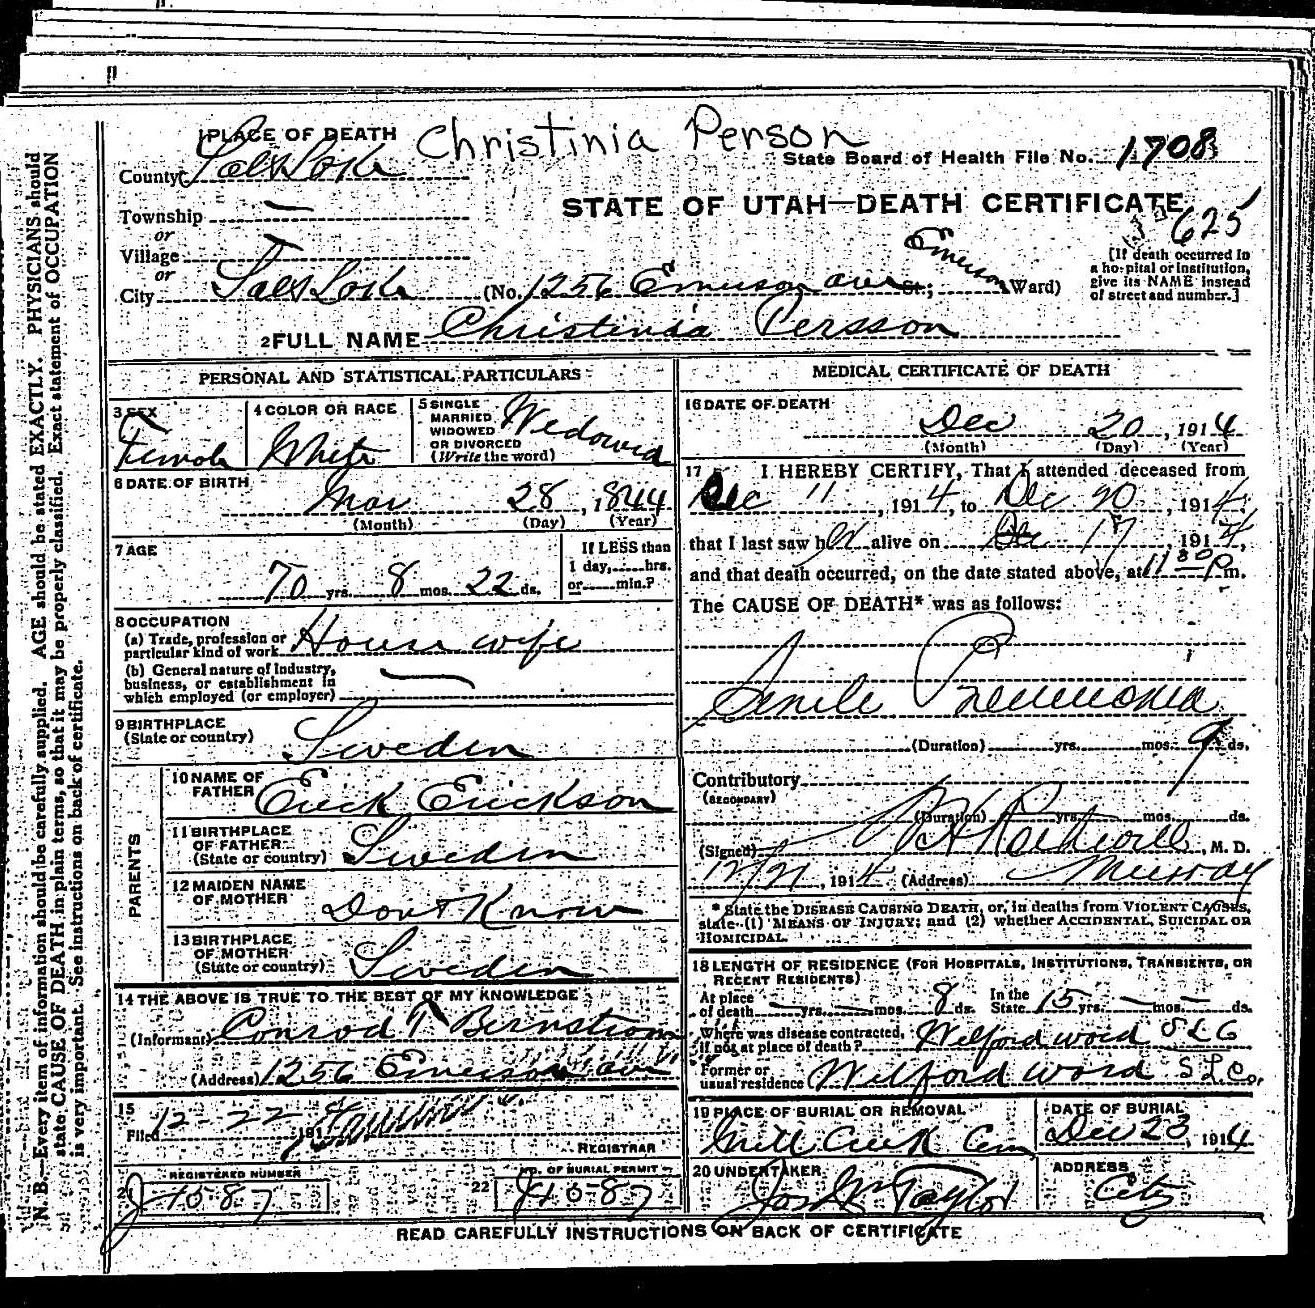 1 PLACE OF DEATH Christinia Person
State Board of Health File No. 1708
County Salt Lake
STATE OF UTAH—DEATH CERTIFICATE
625
Township —
or
Village
or
City Salt Lake (No. 1256 Emerson ave St.; Emerson Ward)
[If death occurred in
a hospital or institution,
give its NAME instead
of street and number.]
2 FULL NAME Christinia Persson
PERSONAL AND STATISTICAL PARTICULARS
3 SEX
Female
4 COLOR OR RACE
White
5 SINGLE
MARRIED
WIDOWED
OR DIVORCED
(Write the word)
Widowed
6 DATE OF BIRTH
Mar 28, 1844
(Month) (Day) (Year)
7 AGE
70 yrs. 8 mos. 22 ds.
If LESS than
1 day, hrs.
or min.?
8 OCCUPATION
(a) Trade, profession or
particular kind of work House wife
(b) General nature of Industry,
business, or establishment in
which employed (or employer) —
9 BIRTHPLACE
(State or country) Sweden
PARENTS
10 NAME OF
FATHER Erick Erickson
11 BIRTHPLACE
OF FATHER
(State or country) Sweden
12 MAIDEN NAME
OF MOTHER Dont Know
13 BIRTHPLACE
OF MOTHER
(State or country) Sweden
14 THE ABOVE IS TRUE TO THE BEST OF MY KNOWLEDGE
(Informant) Conrod T Bernstrom
(Address) 1256 Emerson ave
15
Filed 12-22 191
REGISTRAR
REGISTERED NUMBER
21 J-1587
22 NO. OF BURIAL PERMIT
MEDICAL CERTIFICATE OF DEATH
16 DATE OF DEATH
Dec 20, 1914
(Month) (Day) (Year)
17 I HEREBY CERTIFY, That I attended deceased from
Dec 11, 1914, to Dec 20, 1914,
that I last saw her alive on Dec 17, 1914,
and that death occurred, on the date stated above, at 11 30 P m.
The CAUSE OF DEATH* was as follows:
Senile Pneumonia
(Duration) yrs. mos. 9 ds.
Contributory
(SECONDARY)
(Duration) yrs. mos. ds.
(Signed) M. D.
12/21, 1914 (Address) Murray
* State the DISEASE CAUSING DEATH, or, in deaths from VIOLENT CAUSES,
state (1) MEANS OF INJURY; and (2) whether ACCIDENTAL, SUICIDAL OR
HOMICIDAL.
18 LENGTH OF RESIDENCE (FOR HOSPITALS, INSTITUTIONS, TRANSIENTS, OR
RECENT RESIDENTS)
At place
of death — yrs. — mos. 8 ds. In the
State 15 yrs. — mos. — ds.
Where was disease contracted,
if not at place of death? Wilford ward S L C
Former or
usual residence Wilford ward S L Co.
19 PLACE OF BURIAL OR REMOVAL
Mill Creek Cem
DATE OF BURIAL
Dec 23, 1914
20 UNDERTAKER
Jos Wm Taylor
ADDRESS
City
READ CAREFULLY INSTRUCTIONS ON BACK OF CERTIFICATE
N. B.—Every item of information should be carefully supplied. AGE should be stated EXACTLY. PHYSICIANS should
state CAUSE OF DEATH in plain terms, so that it may be properly classified. Exact statement of OCCUPATION
is very important. See instructions on back of certificate.